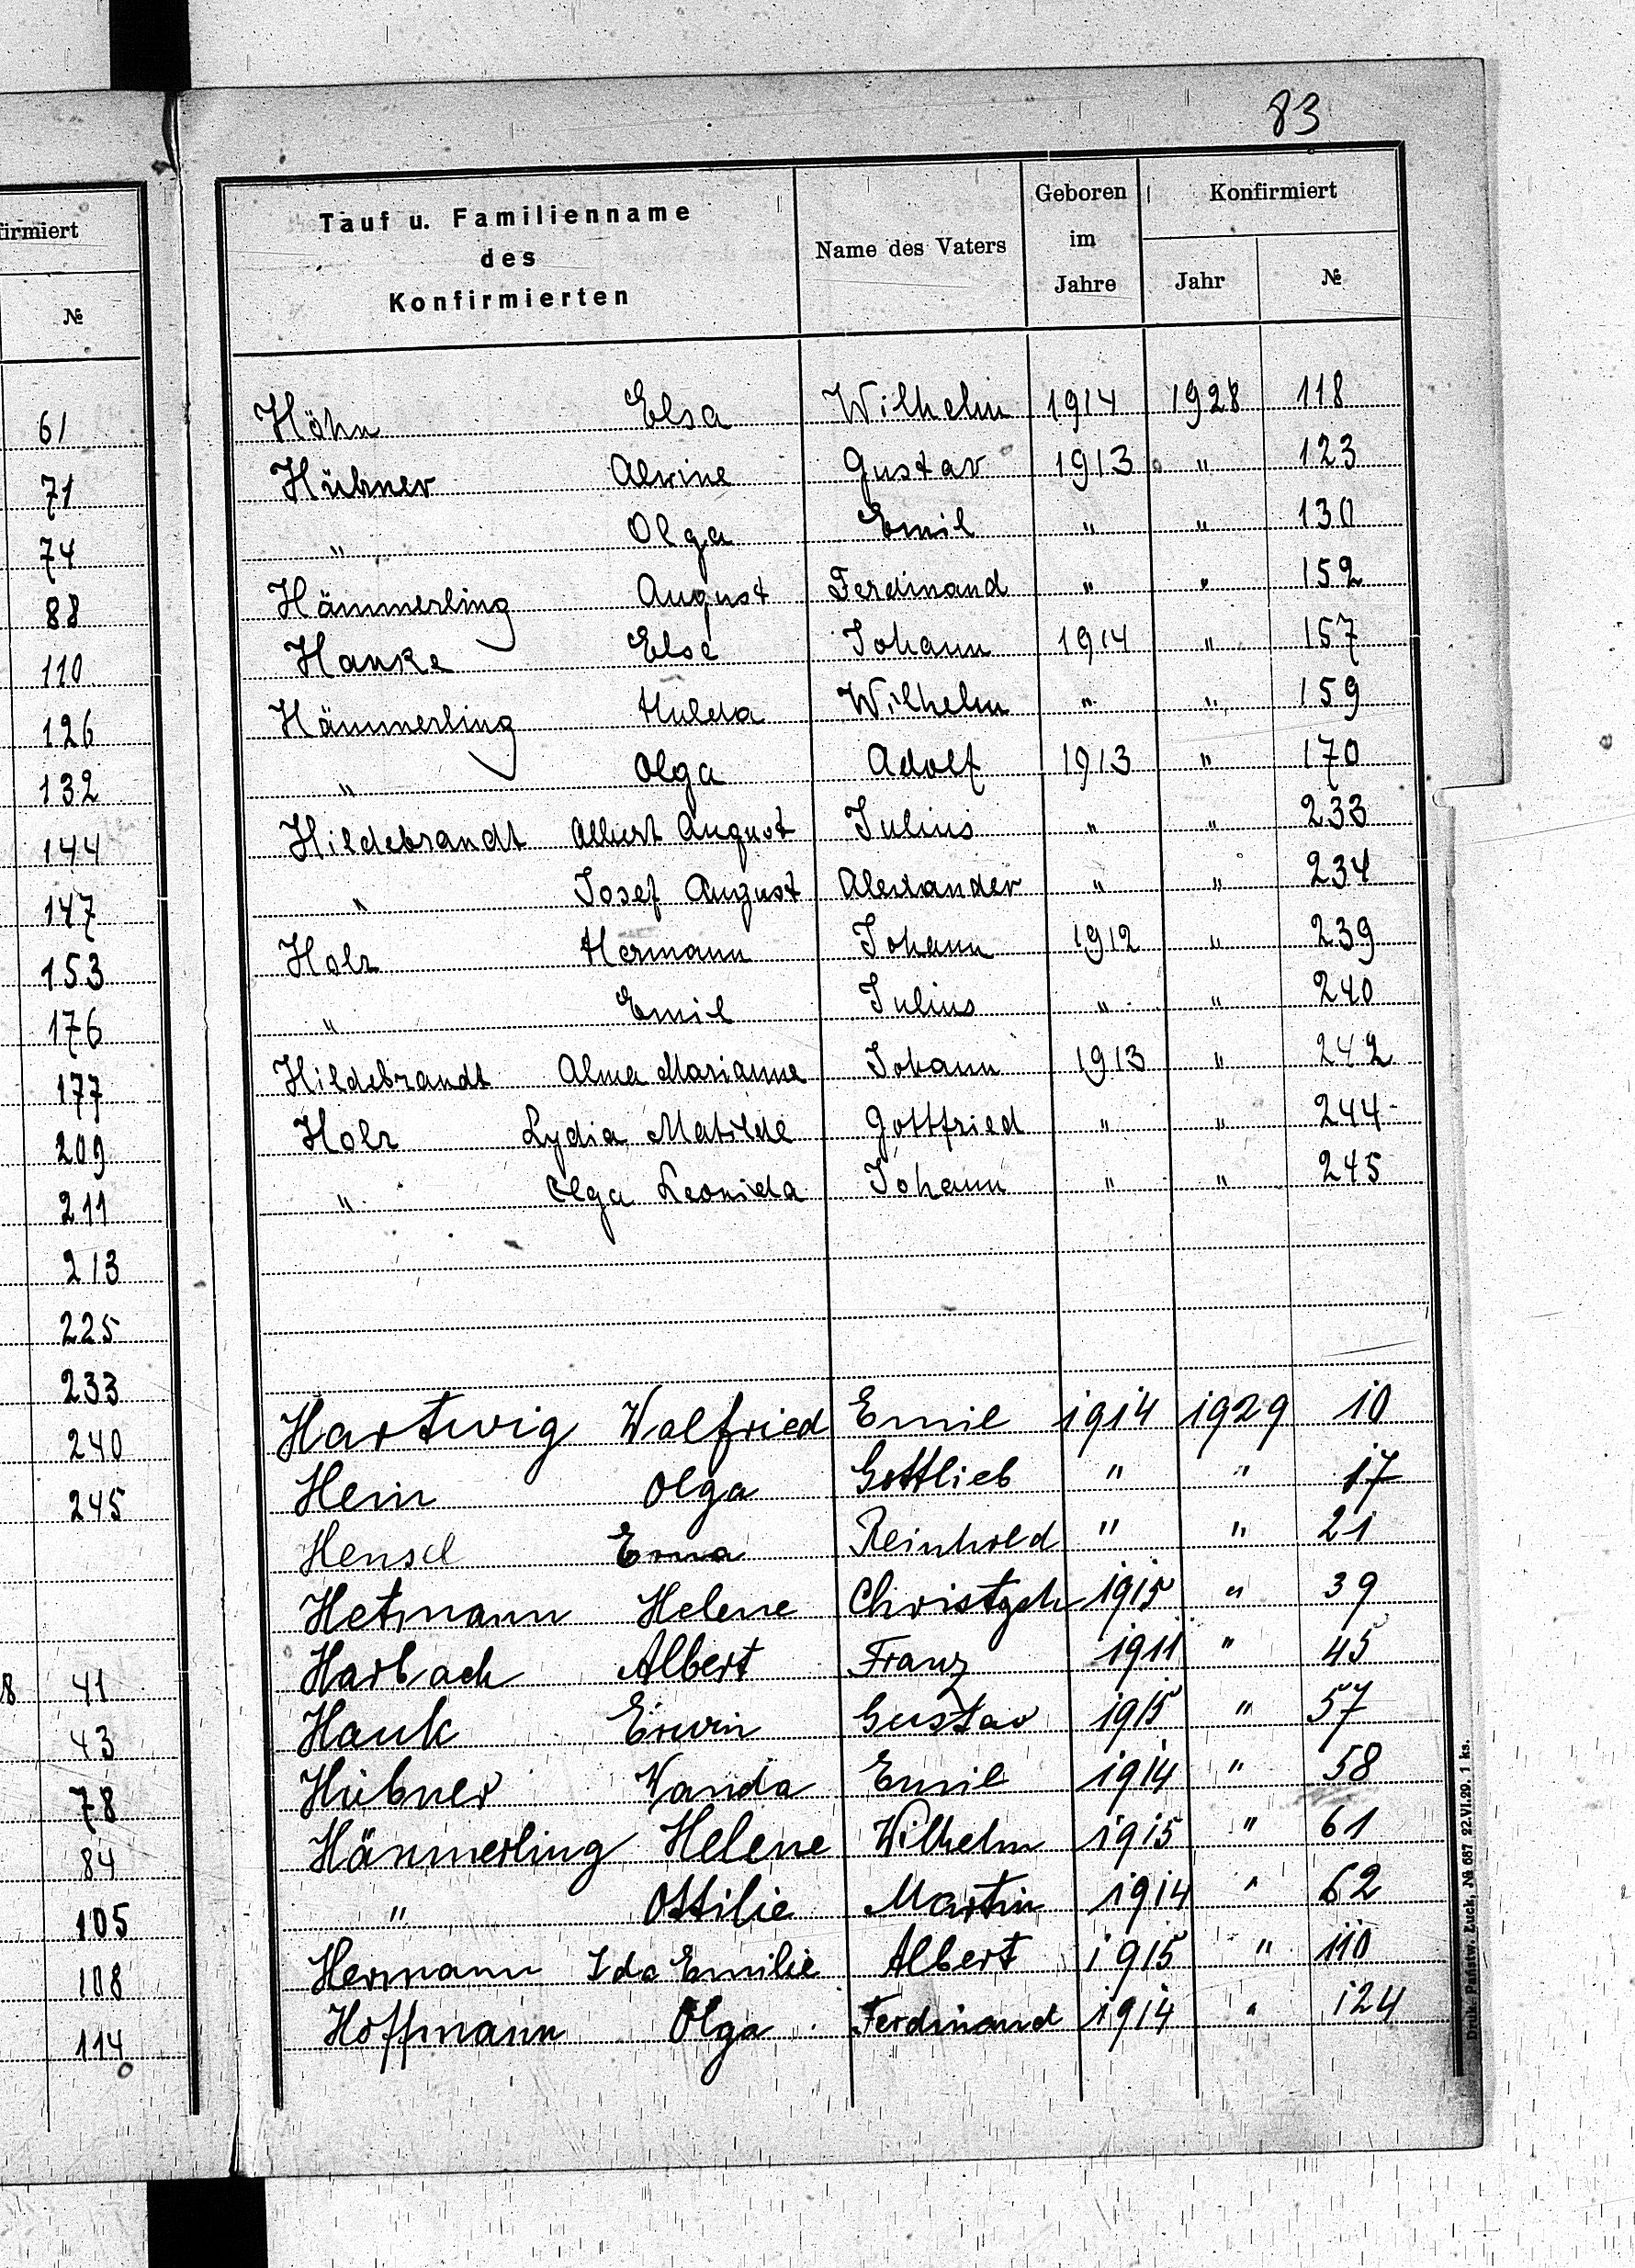 firmiert
№
61
71
74
88
110
126
132
144
147
153
176
177
209
211
213
225
233
240
245
8 41
43
78
84
105
108
114
83
Tauf u. Familienname des Konfirmierten | Name des Vaters | Geboren im Jahre | Konfirmiert
Jahr | №
Höhn Elsa Wilhelm 1914 1928 118
Hübner Alwine Gustav 1913 " 123
" Olga Emil " " 130
Hämmerling August Ferdinand " " 152
Hanke Else Johann 1914 " 157
Hämmerling Hulda Wilhelm " " 159
" Olga Adolf 1913 " 170
Hildebrandt Albert August Julius " " 233
" Josef August Alexander " " 234
Holz Hermann Johann 1912 " 239
" Emil Julius " " 240
Hildebrandt Alma Marianne Johann 1913 " 242
Holz Lydia Matilde Gottfried " " 244
" Olga Leonida Johann " " 245
Hartwig Walfried Emil 1914 1929 10
Hein Olga Gottlieb " " 17
Hensel Erna Reinhold " " 21
Hetmann Helene Christgeh 1915 " 39
Harbach Albert Franz 1911 " 45
Hauk Erwin Gustav 1915 " 57
Hübner Wanda Emil 1914 " 58
Hämmerling Helene Wilhelm 1915 " 61
" Ottilie Martin 1914 " 62
Hermann Ida Emilie Albert 1915 " 110
Hoffmann Olga Ferdinand 1914 " 124
Druk. Państw. Łuck, № 687 22.VI.29. 1 ks.